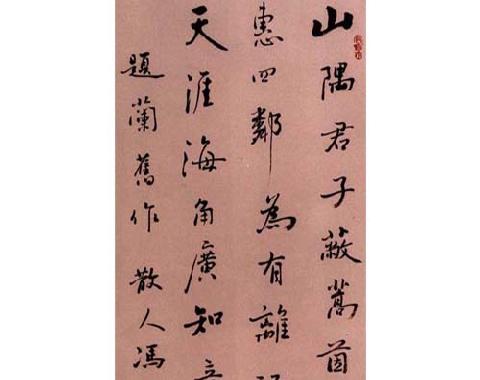 山隅君子蔽蒿茵
惠四鄰為有離
天涯海角廣知
題蘭舊作 散人馮